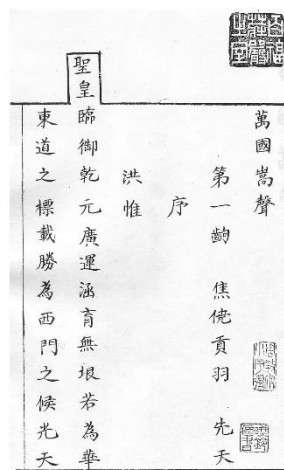 萬國嵩聲
第一齣 焦僥貢羽 先天
序
洪惟
聖皇臨御乾元廣運涵育無垠若為華
東道之標載勝為西門之候光天